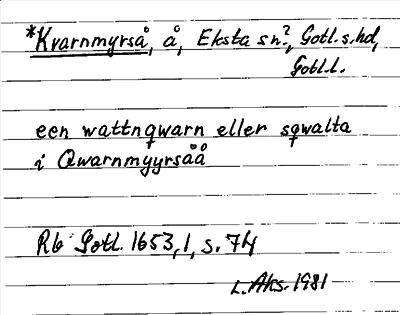 *Kvarnmyrså, å, Eksta sn?, Gotl. s. hd,
Gotl. l.
een wattnqwarn eller sqwalta
i Qwarnmyyrsåå
Rb Gotl. 1653, 1, s. 74
L. Aks. 1981